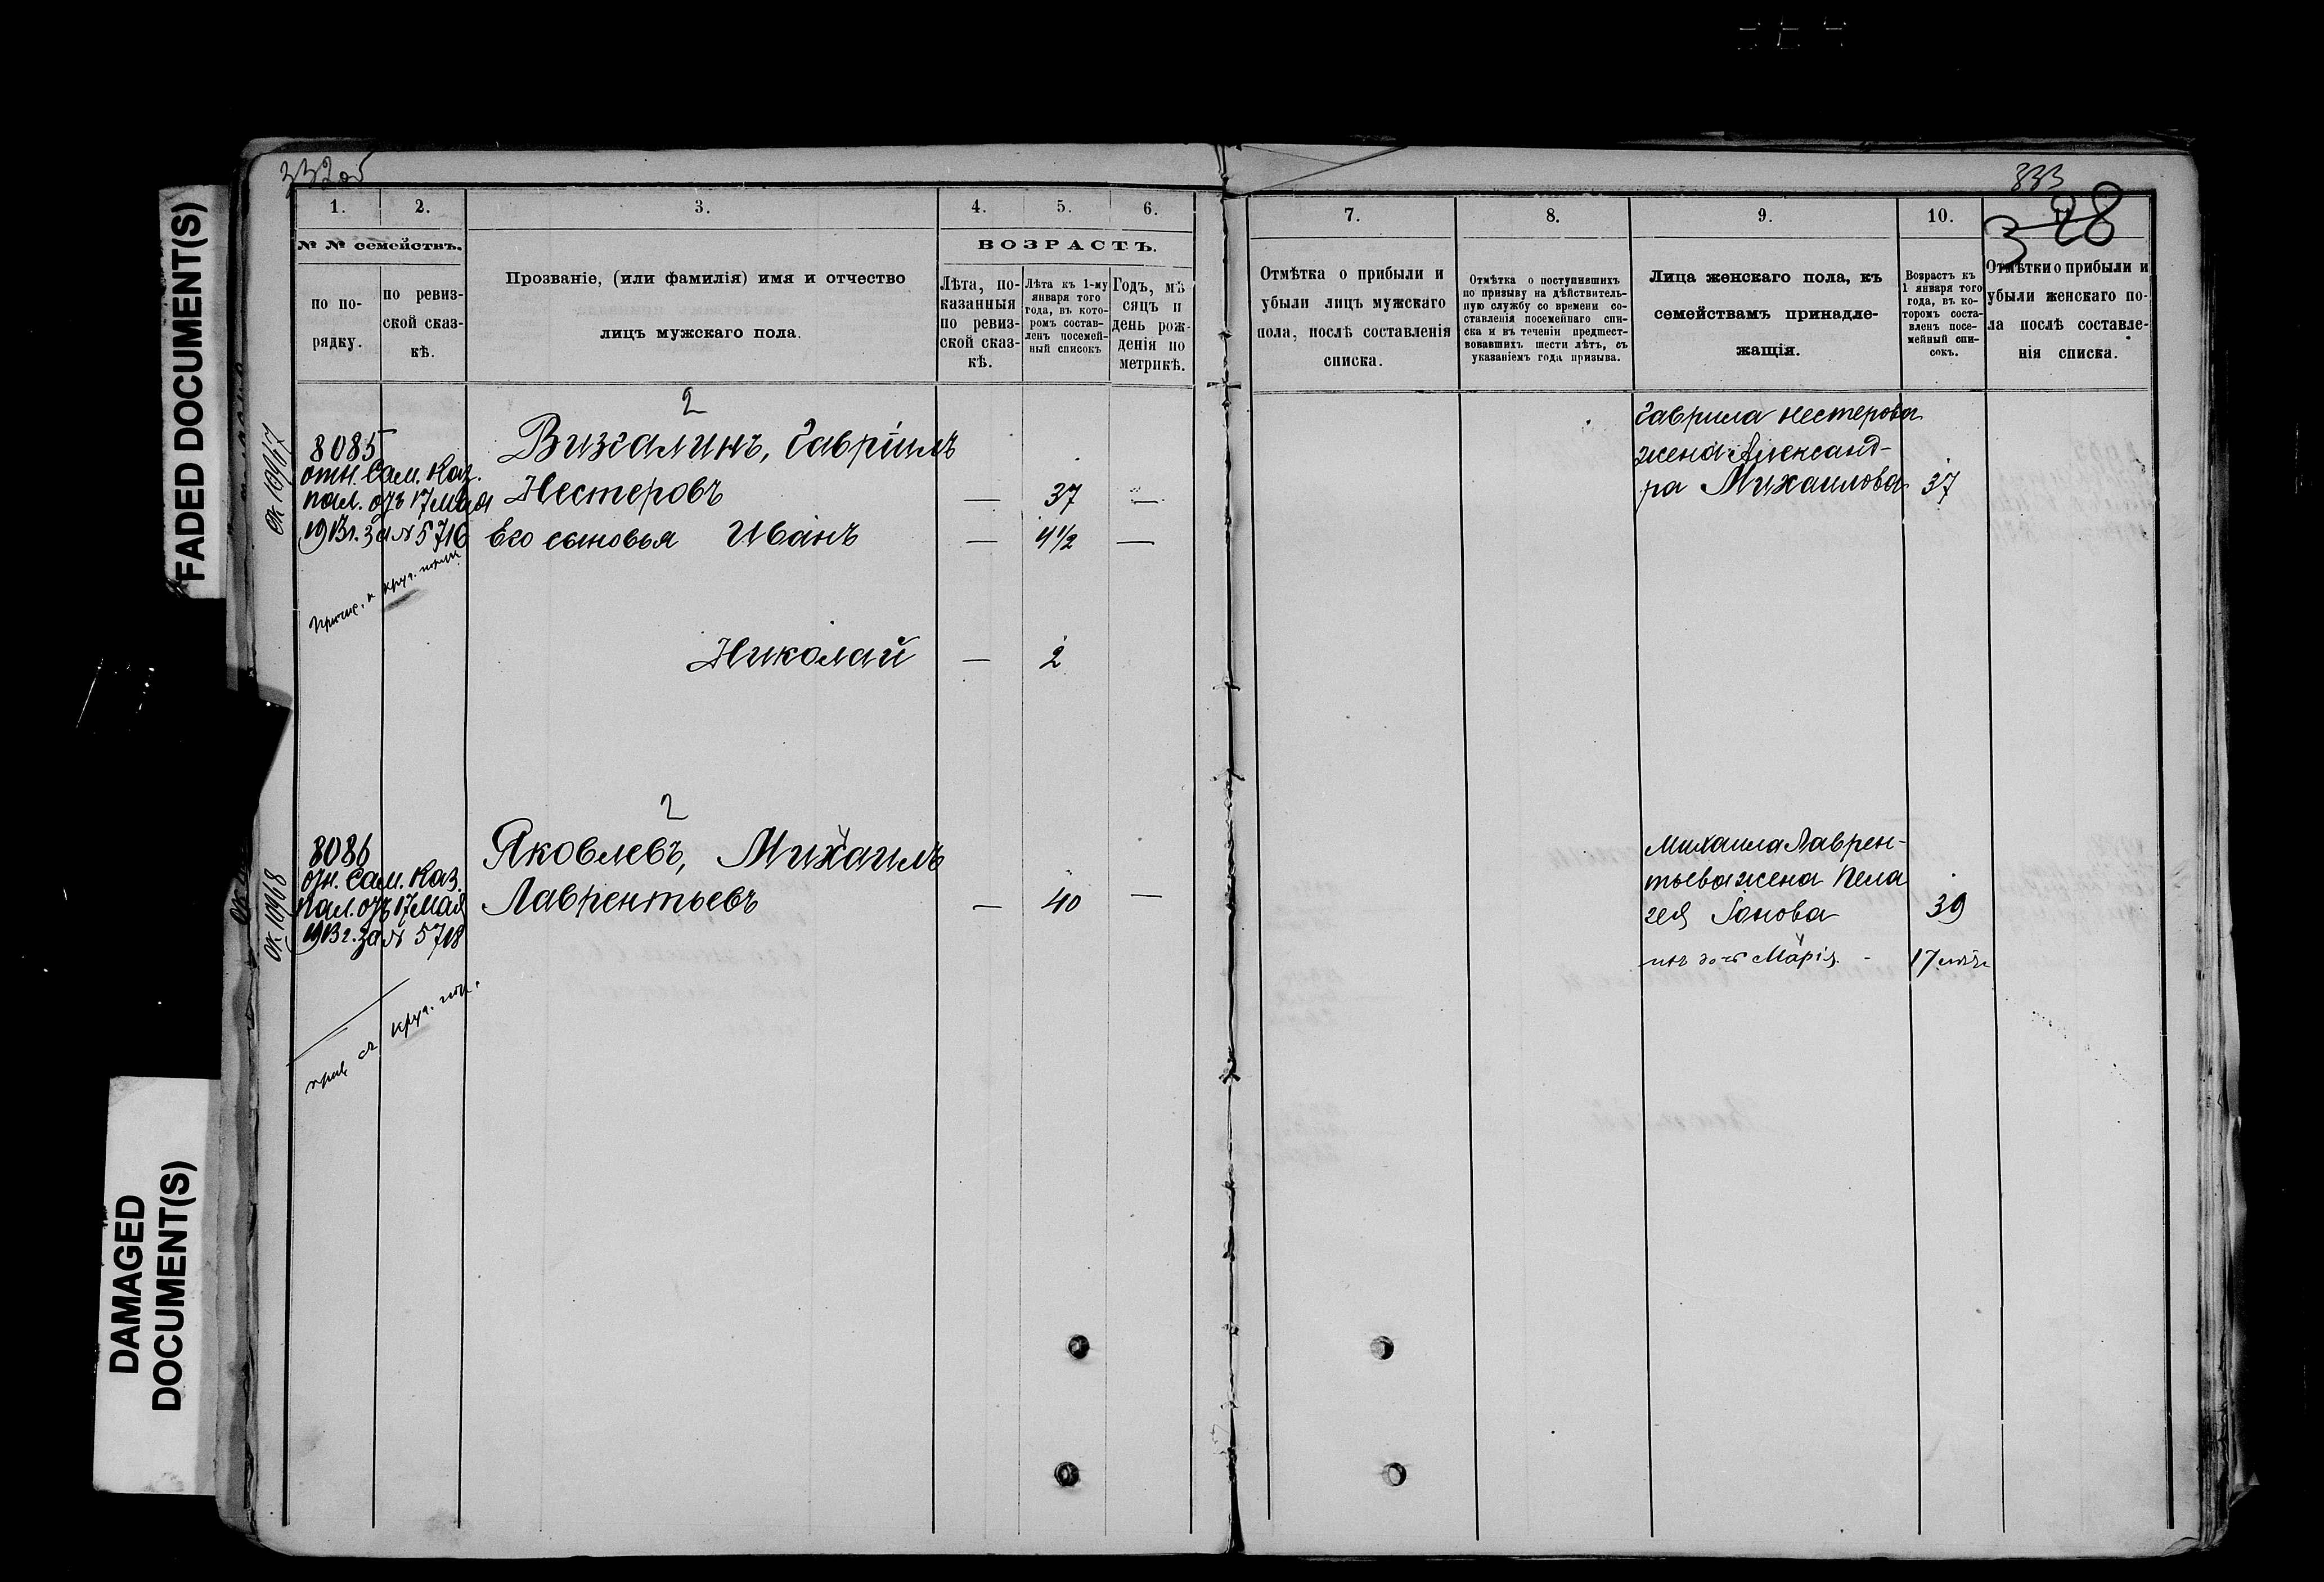 FADED DOCUMENT(S)
DAMAGED
DOCUMENT(S)
332об
1.
2.
3.
4.
5.
6.
№ № семействъ.
по по-
рядку.
по ревиз-
ской сказ-
кѣ.
Прозваніе, (или фамилія) имя и отчество
лицъ мужскаго пола.
ВОЗРАСТЪ.
Лѣта, по-
казанныя
по ревиз-
ской сказ-
кѣ.
Лѣта къ 1-му
января того
года, въ кото-
ромъ состав-
ленъ посемей-
ный списокъ
Годъ, мѣ
сяцъ и
день рож-
денія по
метрикѣ.
ок 10947
2
8085
отн. Сам. Каз.
пал. отъ 17 Мая
1913г. за № 5716
Визгалинъ, Гавріилъ
Нестеровъ — 37 —
Его сыновья Иванъ — 4½ —
Николай — 2
ок 10948
2
8086
отн. Сам. Каз.
Пал. отъ 17 Мая
1913г. за № 5718
Яковлевъ, Михаилъ
Лаврентьевъ — 40 —
333
328
7.
8.
9.
10.
Отмѣтка о прибыли и
убыли лицъ мужскаго
пола, послѣ составленія
списка.
Отмѣтка о поступившихъ
по призыву на дѣйствитель-
ную службу со времени со-
ставленія посемейнаго спи-
ска и въ теченіи предшест-
вовавшихъ шести лѣтъ, съ
указаніемъ года призыва.
Лица женскаго пола, къ
семействамъ принадле-
жащія.
Возрастъ къ
1 января того
года, въ ко-
торомъ соста-
вленъ посе-
мейный спи-
сокъ.
Отмѣтки о прибыли и
убыли женскаго по-
ла послѣ составле-
нія списка.
Гаврила Нестерова
жена Александ-
ра Михаилова 37
Михаила Лаврен-
тьева жена Пела
гея Іонова 39
ихъ дочь Марія - 17 лѣтъ